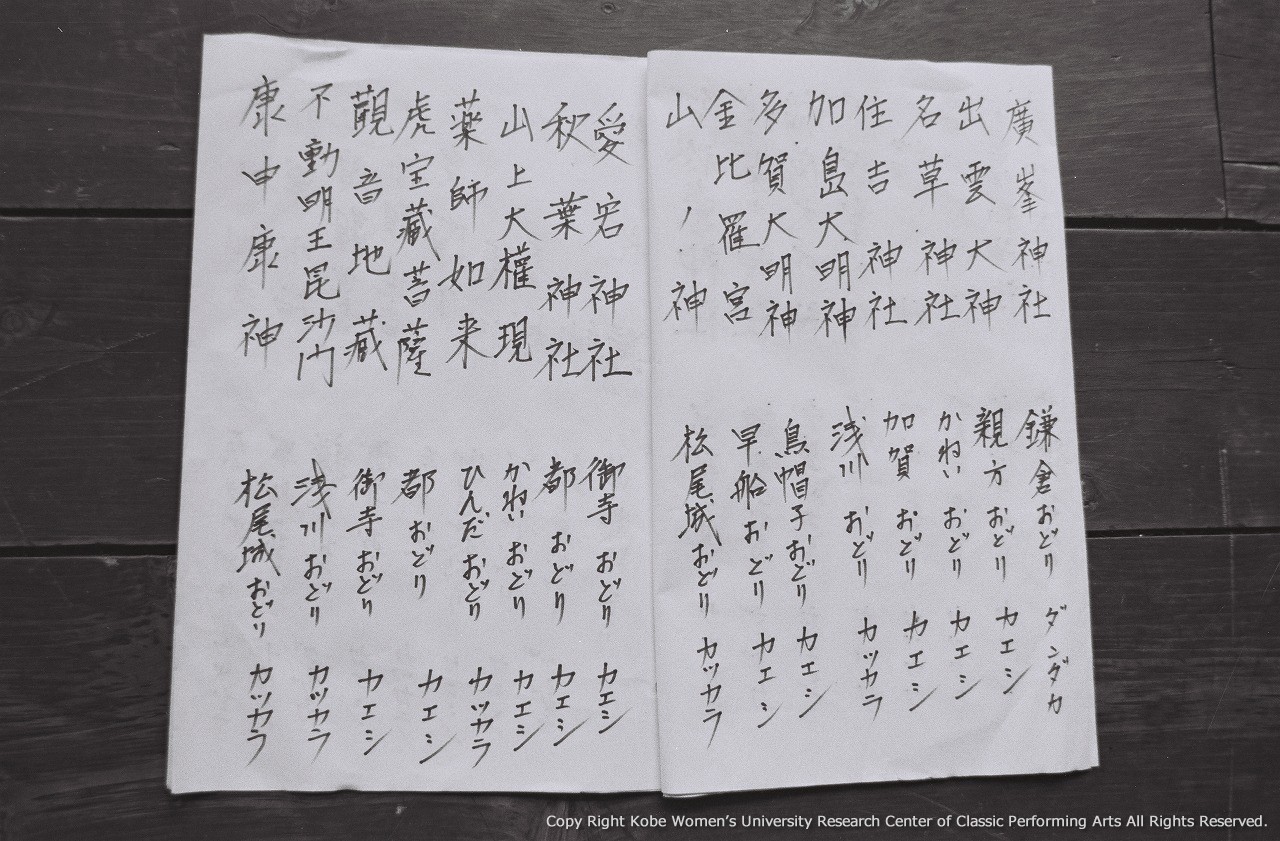 廣峯神社 鎌倉おどり ダンダカ
出雲大神 親方おどり カエシ
名草神社 かねいおどり カエシ
住吉神社 加賀おどり カエシ
加島大明神 浅川おどり カッカラ
多賀大明神 烏帽子おどり カエシ
金比羅宮 早船おどり カエシ
山ノ神 松尾城おどり カッカラ
愛宕神社 御寺おどり カエシ
秋葉神社 都おどり カエシ
山上大權現 かねいおどり カエシ
薬師如来 ひんだおどり カッカラ
虎宝藏菩薩 都おどり カエシ
観音地藏 御寺おどり カエシ
不動明王昆沙門 浅川おどり カッカラ
康申康神 松尾城おどり カッカラ
Copy Right Kobe Women's University Research Center of Classic Performing Arts All Rights Reserved.